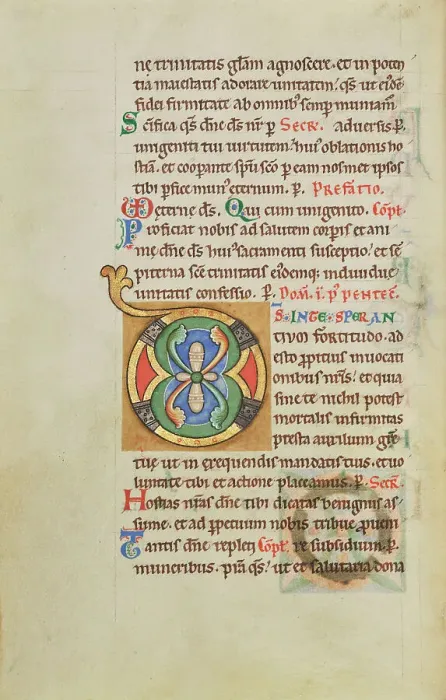 nę trinitatis głam agnoscere. et in poten
tia maiestatis adorare unitatem. qs ut eide
fidei firmitate ab omnibȝ semp muniam
Scifica qs dne ds nr p Secr. adversis. p.
unigeniti tui virtutem. hui' oblationis ho
stiā. et cooperante spu sco p eam nosmet ipsos
tibi pfice mun' eternum. p. Prefatio.
eterne ds. Qui cum unigenito. Cōpl.
Proficiat nobis ad salutem corpis et ani
mę dne ds hui' sacramenti susceptio. et se
piterna scē trinitatis eidemq; individuę
unitatis confessio. p. Dom. i. p pentec.
DS. INTE SPERAN
tium fortitudo. ad
esto ppitius invocati
onibus nris. et quia
sine te nichil potest
mortalis infirmitas
presta auxilium grē
tuę ut in exequendis mandatis tuis. et vo
luntate tibi et actione placeamus. p. Secr.
Hostias nras dne tibi dicatas benignus as
sume. et ad ppetuum nobis tribue pvenire
Tantis dne repleti Cōpl. re subsidium. p.
muneribus. pta qs. ut et salutaria dona